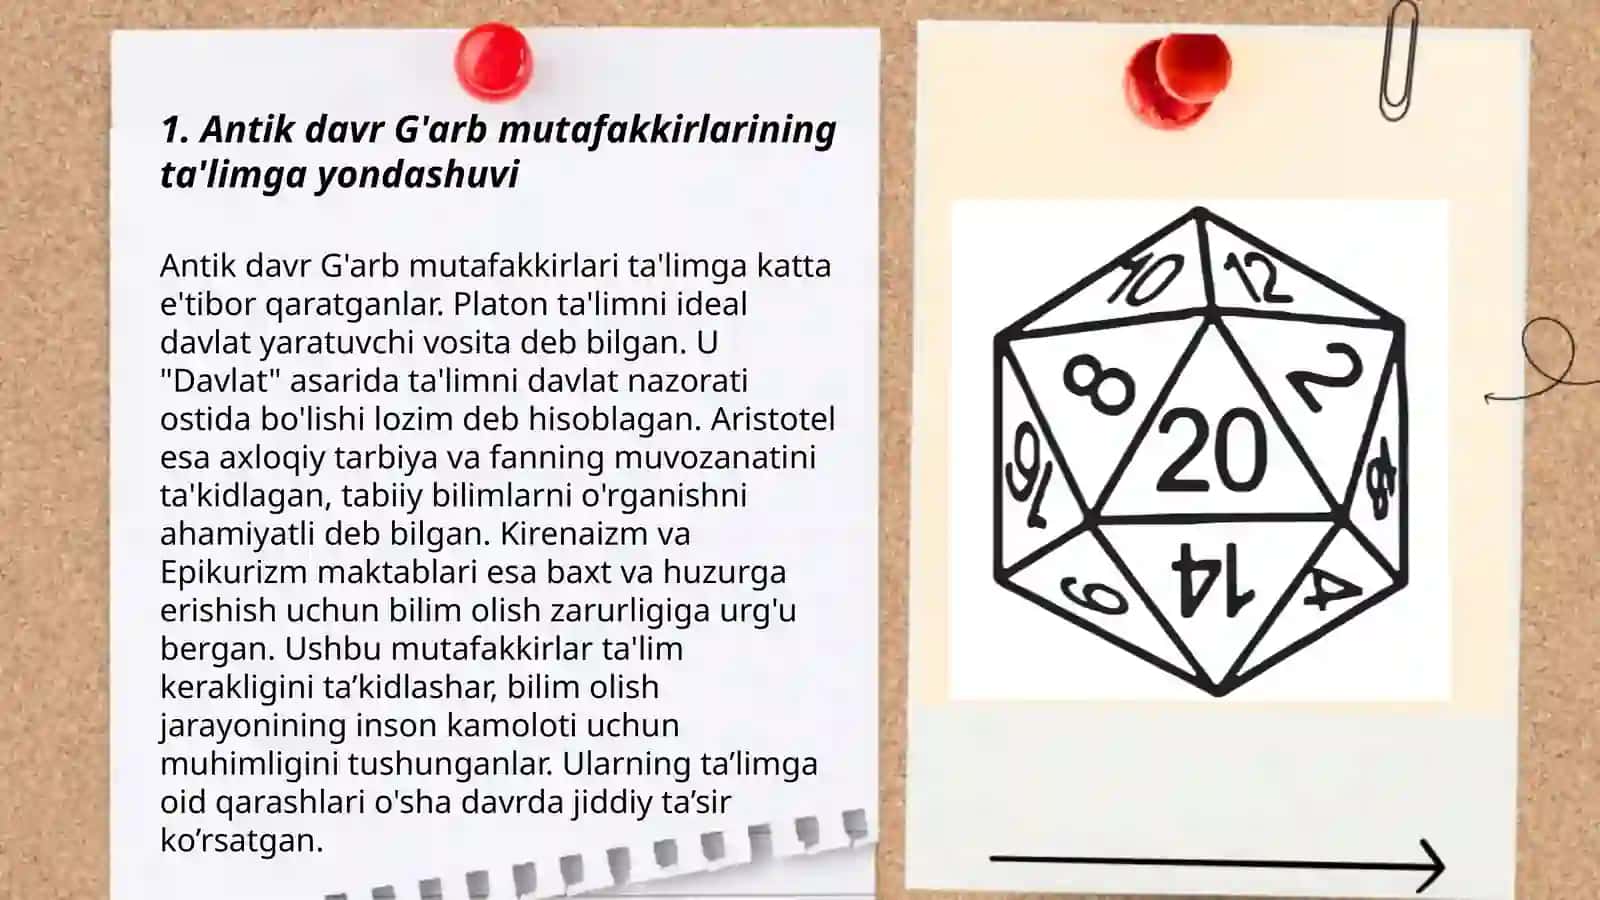 1. Antik davr G'arb mutafakkirlarining
ta'limga yondashuvi
Antik davr G'arb mutafakkirlari ta'limga katta
e'tibor qaratganlar. Platon ta'limni ideal
davlat yaratuvchi vosita deb bilgan. U
"Davlat" asarida ta'limni davlat nazorati
ostida bo'lishi lozim deb hisoblagan. Aristotel
esa axloqiy tarbiya va fanning muvozanatini
ta'kidlagan, tabiiy bilimlarni o'rganishni
ahamiyatli deb bilgan. Kirenaizm va
Epikurizm maktablari esa baxt va huzurga
erishish uchun bilim olish zarurligiga urg'u
bergan. Ushbu mutafakkirlar ta'lim
kerakligini ta’kidlashar, bilim olish
jarayonining inson kamoloti uchun
muhimligini tushunganlar. Ularning ta’limga
oid qarashlari o'sha davrda jiddiy ta’sir
ko’rsatgan.
10 12
8 2
20
14
4